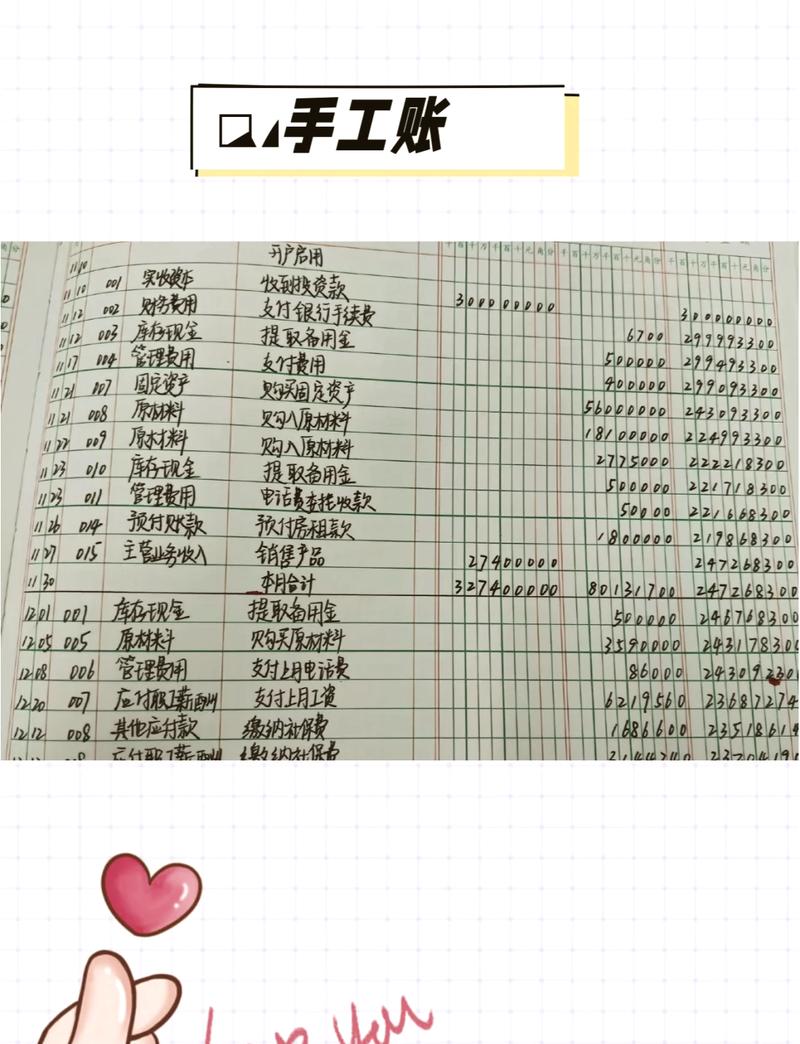 手工账
千百十万千百十元角分 千百十万千百十元角分 千百十万千百十元角分
11 10 开户启用
11 10 001 实收资本 收到投资款 300000000 300000000
11 12 002 财务费用 支付银行手续费 6700 299993300
11 12 003 库存现金 提取备用金 500000 299493300
11 17 004 管理费用 支付费用 400000 299093300
11 21 007 固定资产 购买固定资产 56000000 243093300
11 21 008 原材料 购入原材料 18100000 224993300
11 22 009 原材料 购入原材料 2775000 222218300
11 23 010 库存现金 提取备用金 500000 221718300
11 23 011 管理费用 电话费委托收款 50000 221668300
11 26 014 预付账款 预付房租款 1800000 219868300
11 27 015 主营业务收入 销售产品 27400000 247268300
11 30 本月合计 327400000 80131700 247268300
12 01 001 库存现金 提取备用金 500000 246768300
12 05 005 原材料 购买原材料 3590000 243178300
12 08 006 管理费用 支付上月电话费 86000 24309230
12 20 007 应付职工薪酬 支付上月工资 6219560 23687274
12 12 008 其他应付款 缴纳社保费 1686600 23518614
应付职工薪酬 缴纳社保费
you